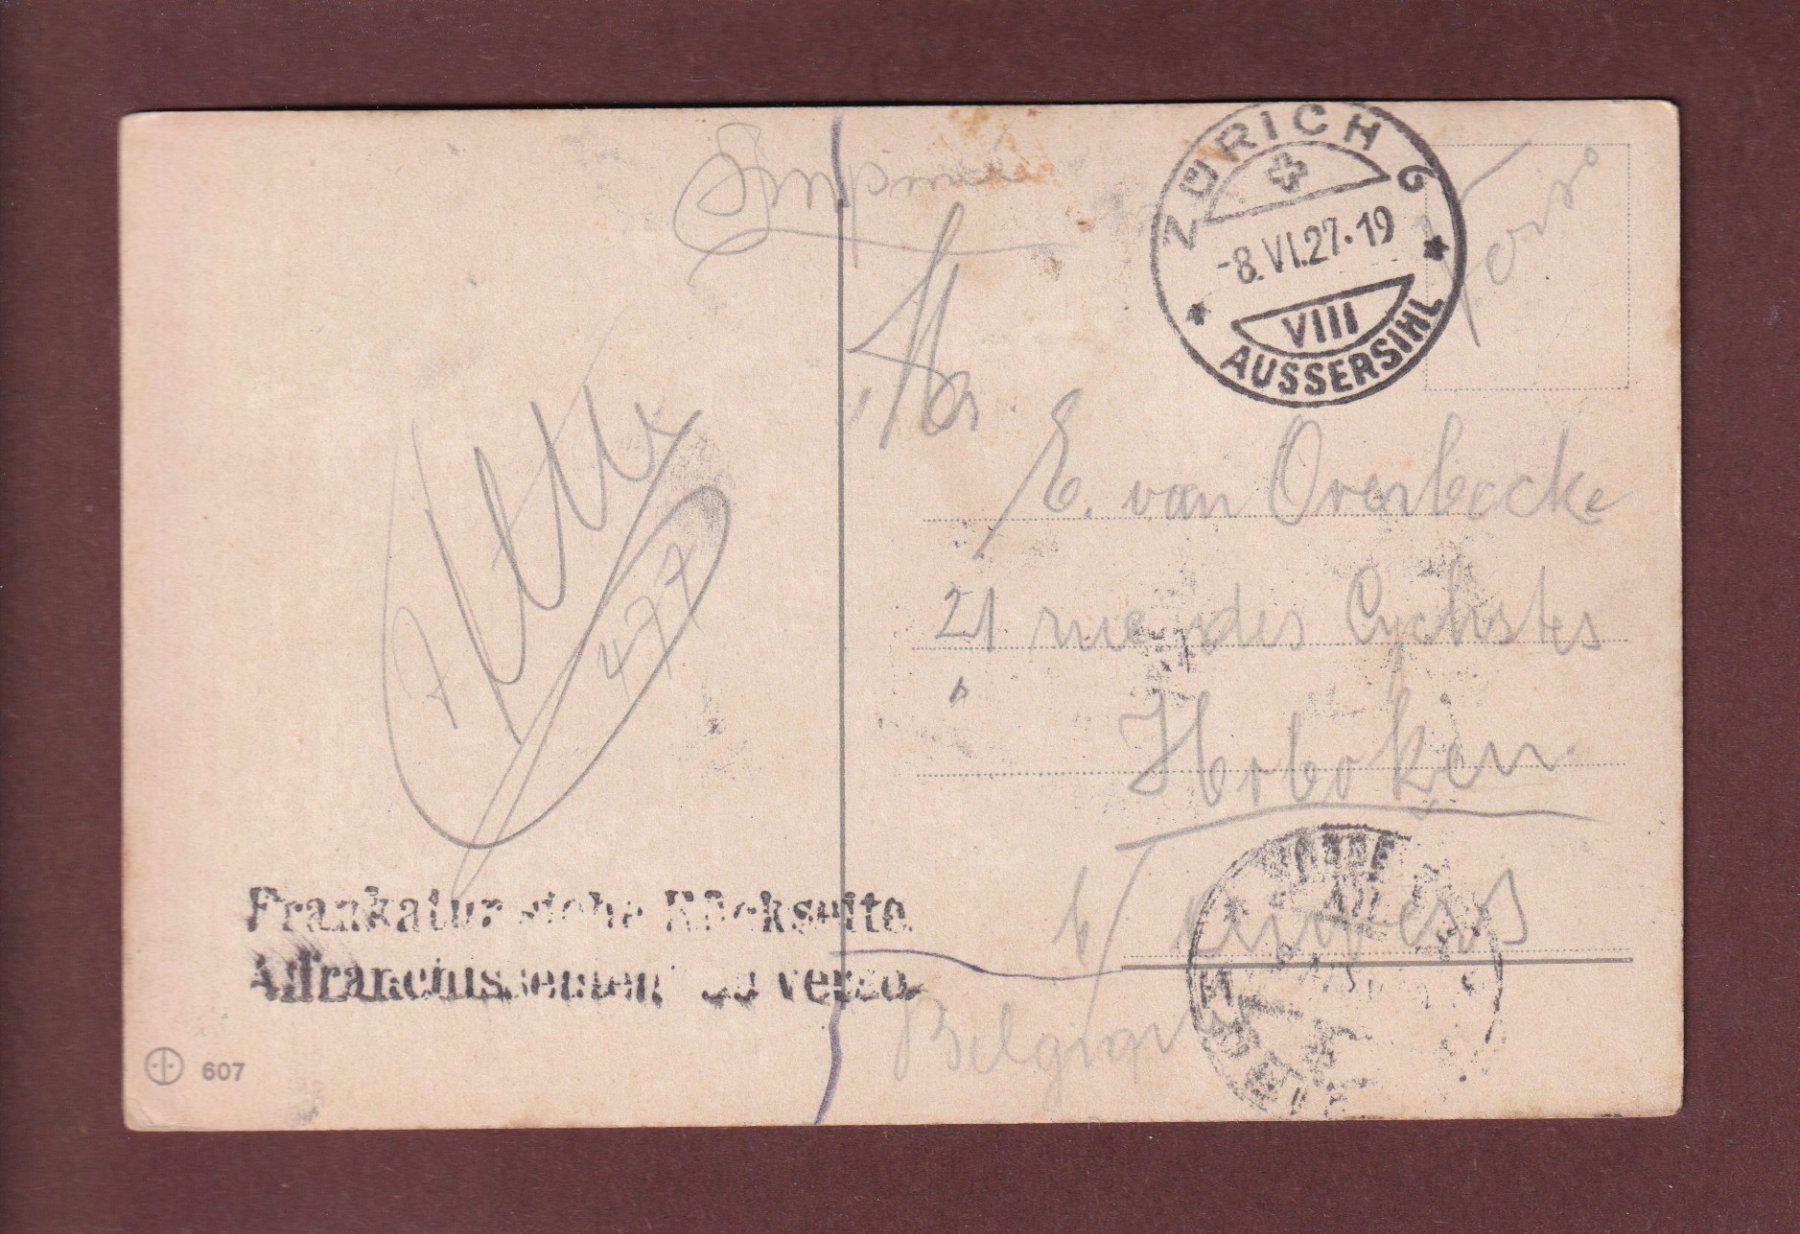 Imprimé
ZÜRICH 6
-8.VI.27.-19
VIII
AUSSERSIHL
Verso
Mr.
E. van Overbecke
21 rue des Cyclistes
Hoboken
b/ Anvers
Belgique
477
Frankatur siehe Rückseite.
Affranchissement au verso.
607